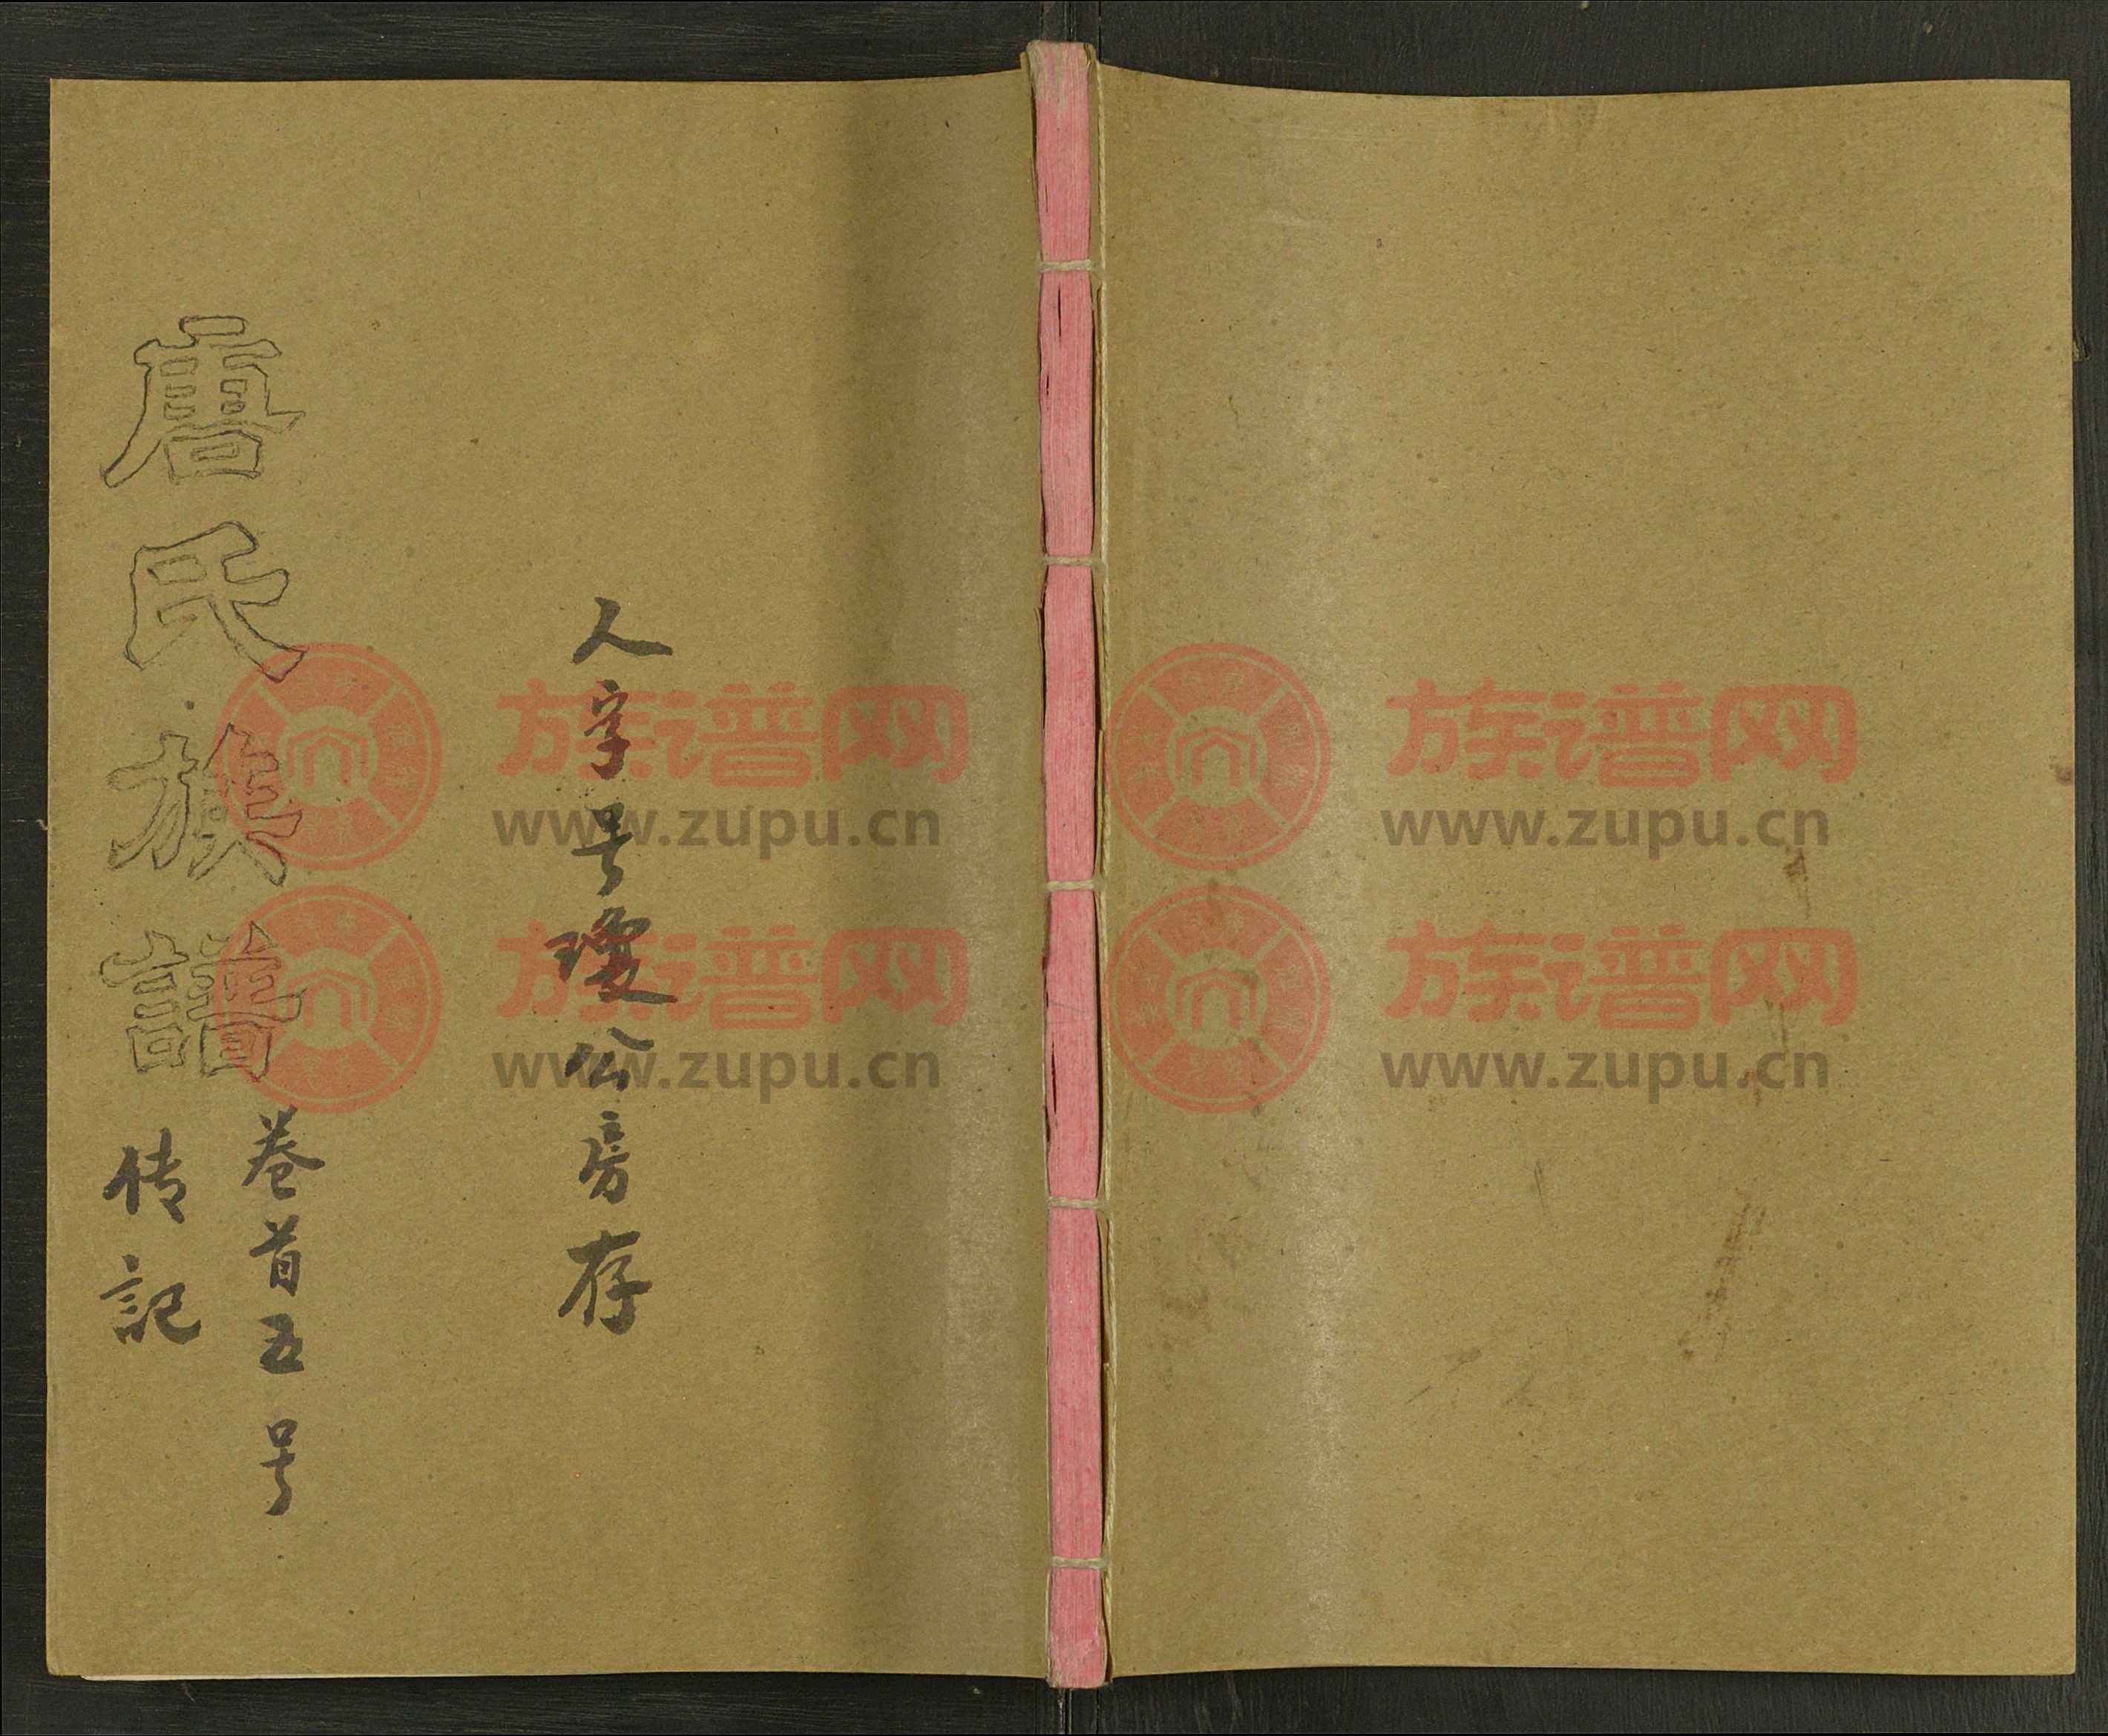 人字号瓊公房存
唐氏族譜
卷首五号
传記
族谱网
www.zupu.cn
族谱网
www.zupu.cn
族谱网
www.zupu.cn
族谱网
www.zupu.cn